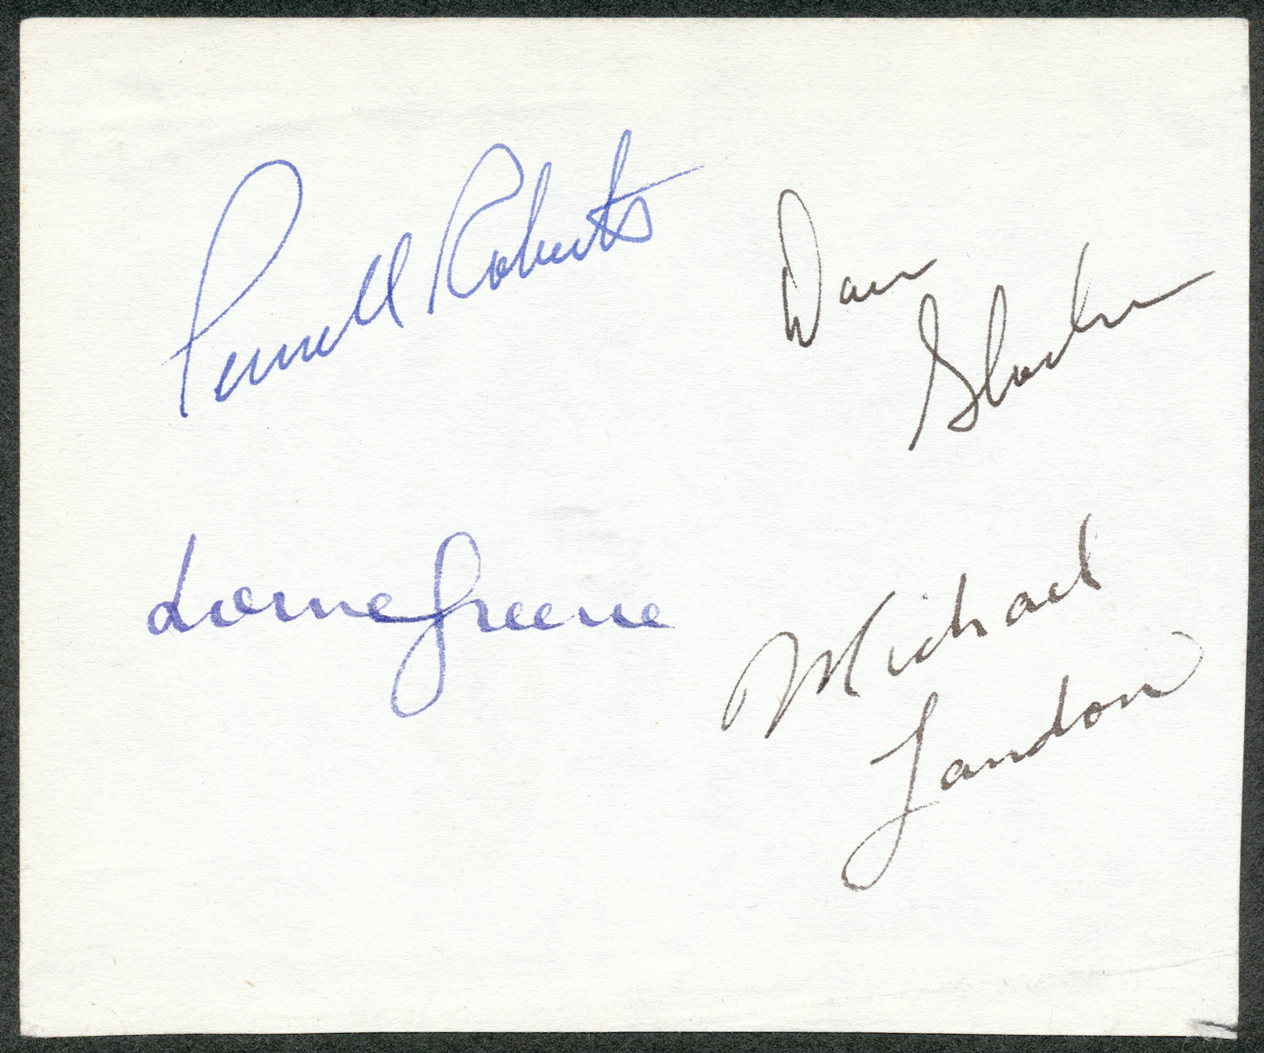 Pernell Roberts
Dan
Blocker
Lorne Greene
Michael
Landon